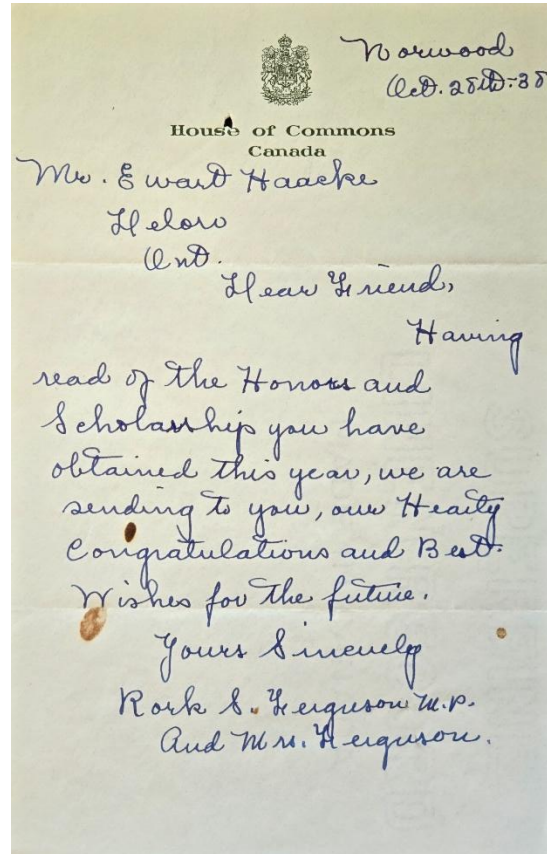 Norwood
Oct. 28th-38
House of Commons
Canada
Mr. Ewart Haacke
Deloro
Ont.
Dear Friend,
Having
read of the Honors and
Scholarship you have
obtained this year, we are
sending to you, our Hearty
Congratulations and Best
Wishes for the future.
Yours Sincerely
Rork S. Ferguson M.P.
And Mrs. Ferguson.